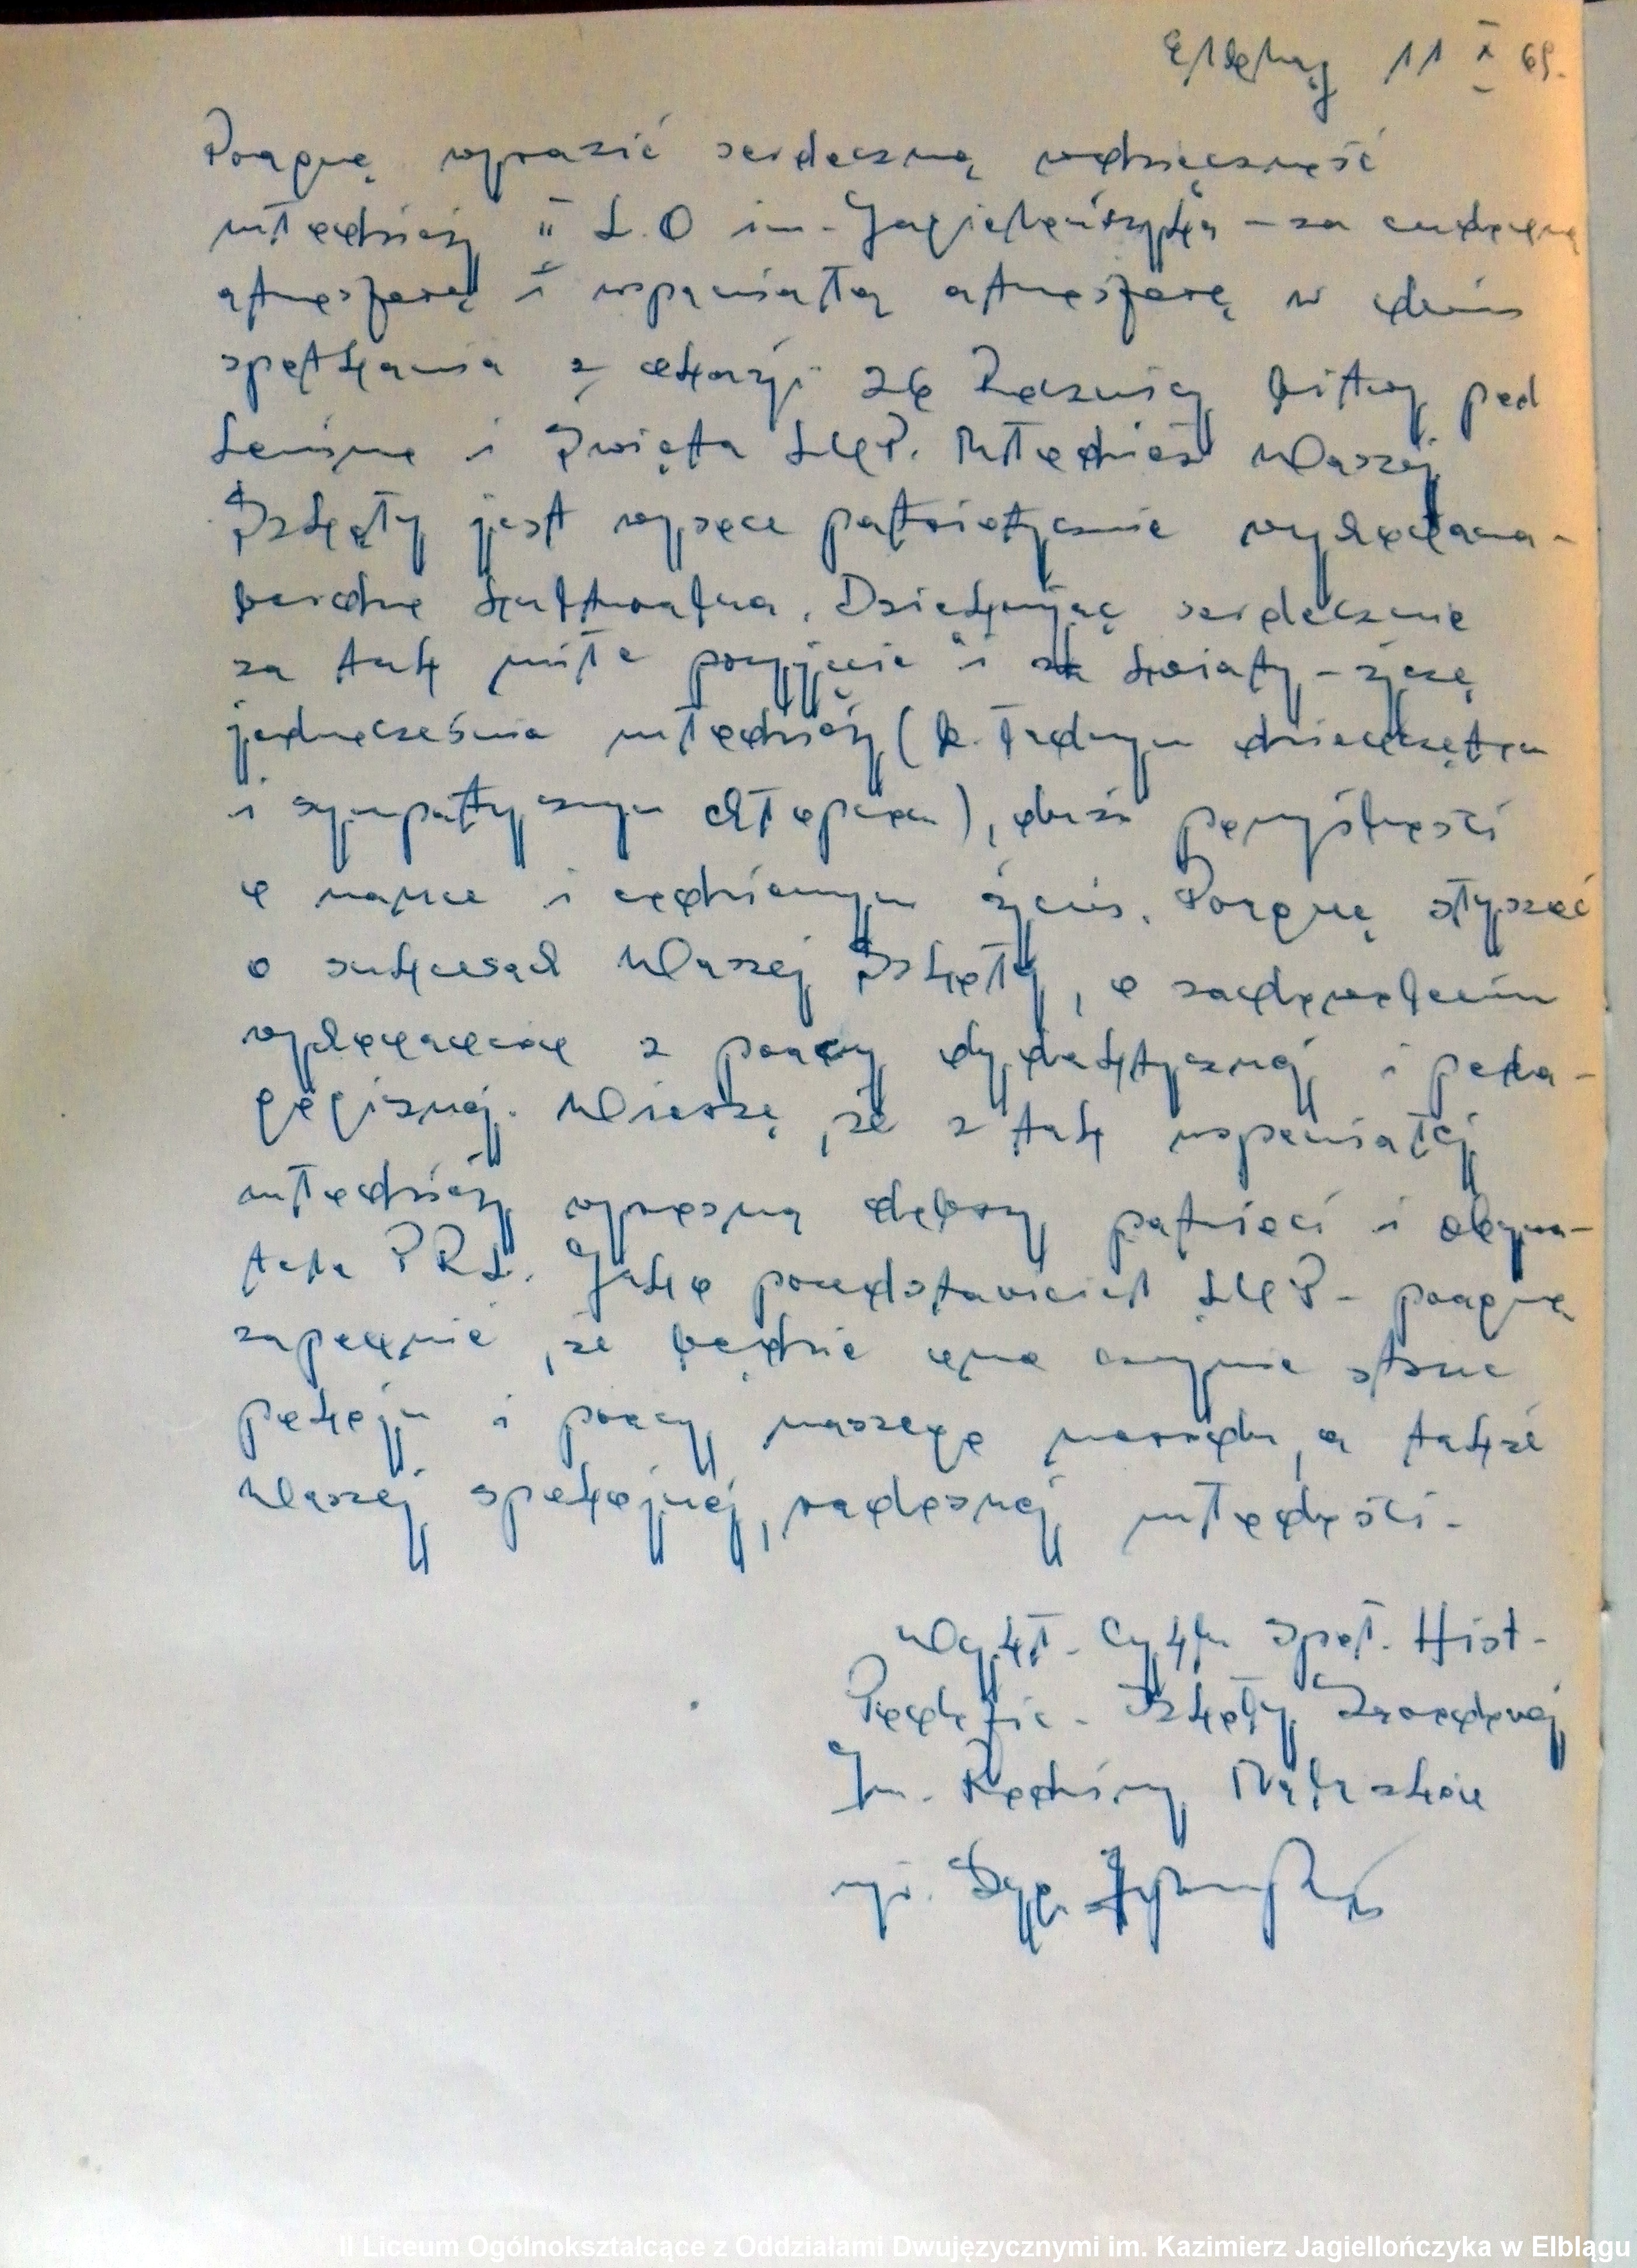 Elbląg 11 X 69.
Pragnę wyrazić serdeczną wdzięczność
młodzieży II L.O im. Jagiellończyka – za cudowną
atmosferę i wspaniałą atmosferę w dniu
spotkania z okazji 26 Rocznicy bitwy pod
Lenino i Święta LWP. Młodzież Waszej
Szkoły jest wysoce patriotycznie wychowana –
bardzo kulturalna. Dziękując serdecznie
za tak miłe przyjęcie i za kwiaty – życzę
jednocześnie młodzieży (b. ładnym dziewczętom
i sympatycznym chłopcom), dużo pomyślności
w nauce i codziennym życiu. Pragnę słyszeć
o sukcesach Waszej Szkoły, o zadowoleniu
wychowawców z pracy dydaktycznej i peda-
gogicznej. Wierzę, że z tak wspaniałej
młodzieży wyrosną dobrzy patrioci i obywa-
tele PRL. Jako przedstawiciel LWP – pragnę
zapewnić, że będzie ono czujnie strzec
pokoju i pracy naszego narodu, a także
Waszej spokojnej, radosnej młodości.
Wykł. Cyklu Społ. Hist.
Podofic. Szkoły Zawodowej
Im. Rodziny Nalazków
mjr. Dypl.
II Liceum Ogólnokształcące z Oddziałami Dwujęzycznymi im. Kazimierz Jagiellończyka w Elblągu